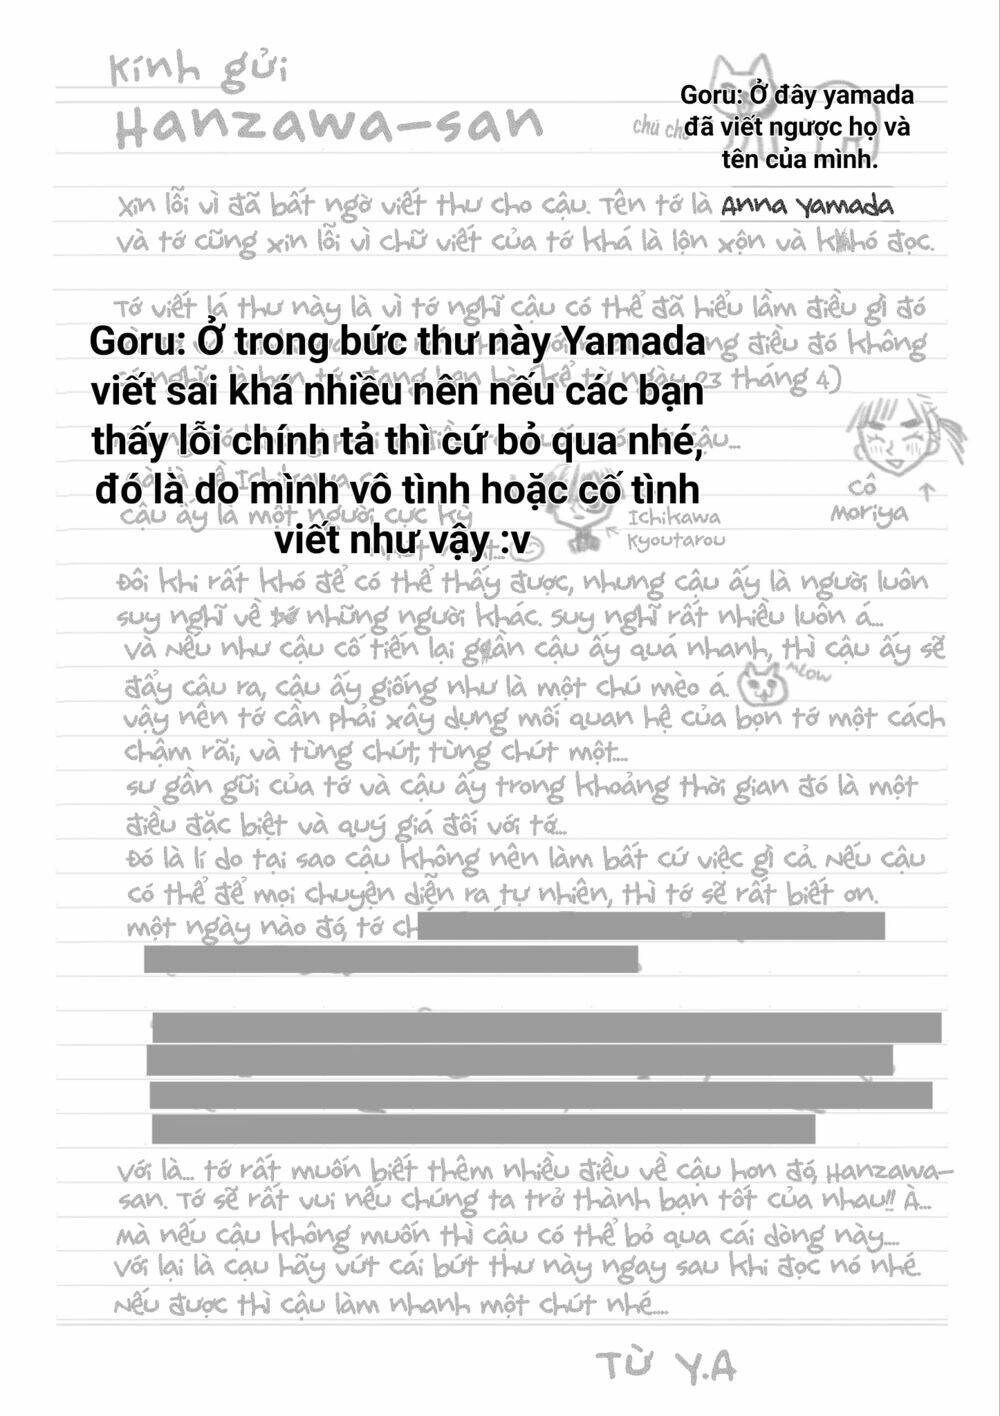 Kính gửi
Hanzawa-san
chú ch
Goru: Ở đây yamada
đã viết ngược họ và
tên của mình.
Xin lỗi vì đã bất ngờ viết thư cho cậu. Tên tớ là Anna Yamada
và tớ cũng xin lỗi vì chữ viết của tớ khá là lộn xộn và khó đọc.
Tớ viết lá thư này là vì tớ nghĩ cậu có thể đã hiểu lầm điều gì đó
điều đó không
tháng 4)
cậu...
Goru: Ở trong bức thư này Yamada
viết sai khá nhiều nên nếu các bạn
thấy lỗi chính tả thì cứ bỏ qua nhé,
đó là do mình vô tình hoặc cố tình
viết như vậy :v
cậu ấy là một người cực kỳ
Ichikawa
Kyoutarou
Cô
Moriya
Đôi khi rất khó để có thể thấy được, nhưng cậu ấy là người luôn
suy nghĩ về những người khác. Suy nghĩ rất nhiều luôn á...
và nếu như cậu cố tiến lại gần cậu ấy quá nhanh, thì cậu ấy sẽ
đẩy cậu ra, cậu ấy giống như là một chú mèo á.
meow
vậy nên tớ cần phải xây dựng mối quan hệ của bọn tớ một cách
chậm rãi, và từng chút, từng chút một....
sư gần gũi của tớ và cậu ấy trong khoảng thời gian đó là một
điều đặc biệt và quý giá đối với tớ...
Đó là lí do tại sao cậu không nên làm bất cứ việc gì cả. Nếu cậu
có thể để mọi chuyện diễn ra tự nhiên, thì tớ sẽ rất biết ơn.
một ngày nào đó, tớ ch
Với là... tớ rất muốn biết thêm nhiều điều về cậu hơn đó, Hanzawa-
san. Tớ sẽ rất vui nếu chúng ta trở thành bạn tốt của nhau!! À...
Mà nếu cậu không muốn thì cậu có thể bỏ qua cái dòng này....
Với lại là cạu hãy vứt cái bứt thư này ngay sau khi đọc nó nhé.
Nếu được thì cậu làm nhanh một chút nhé....
Từ Y.A